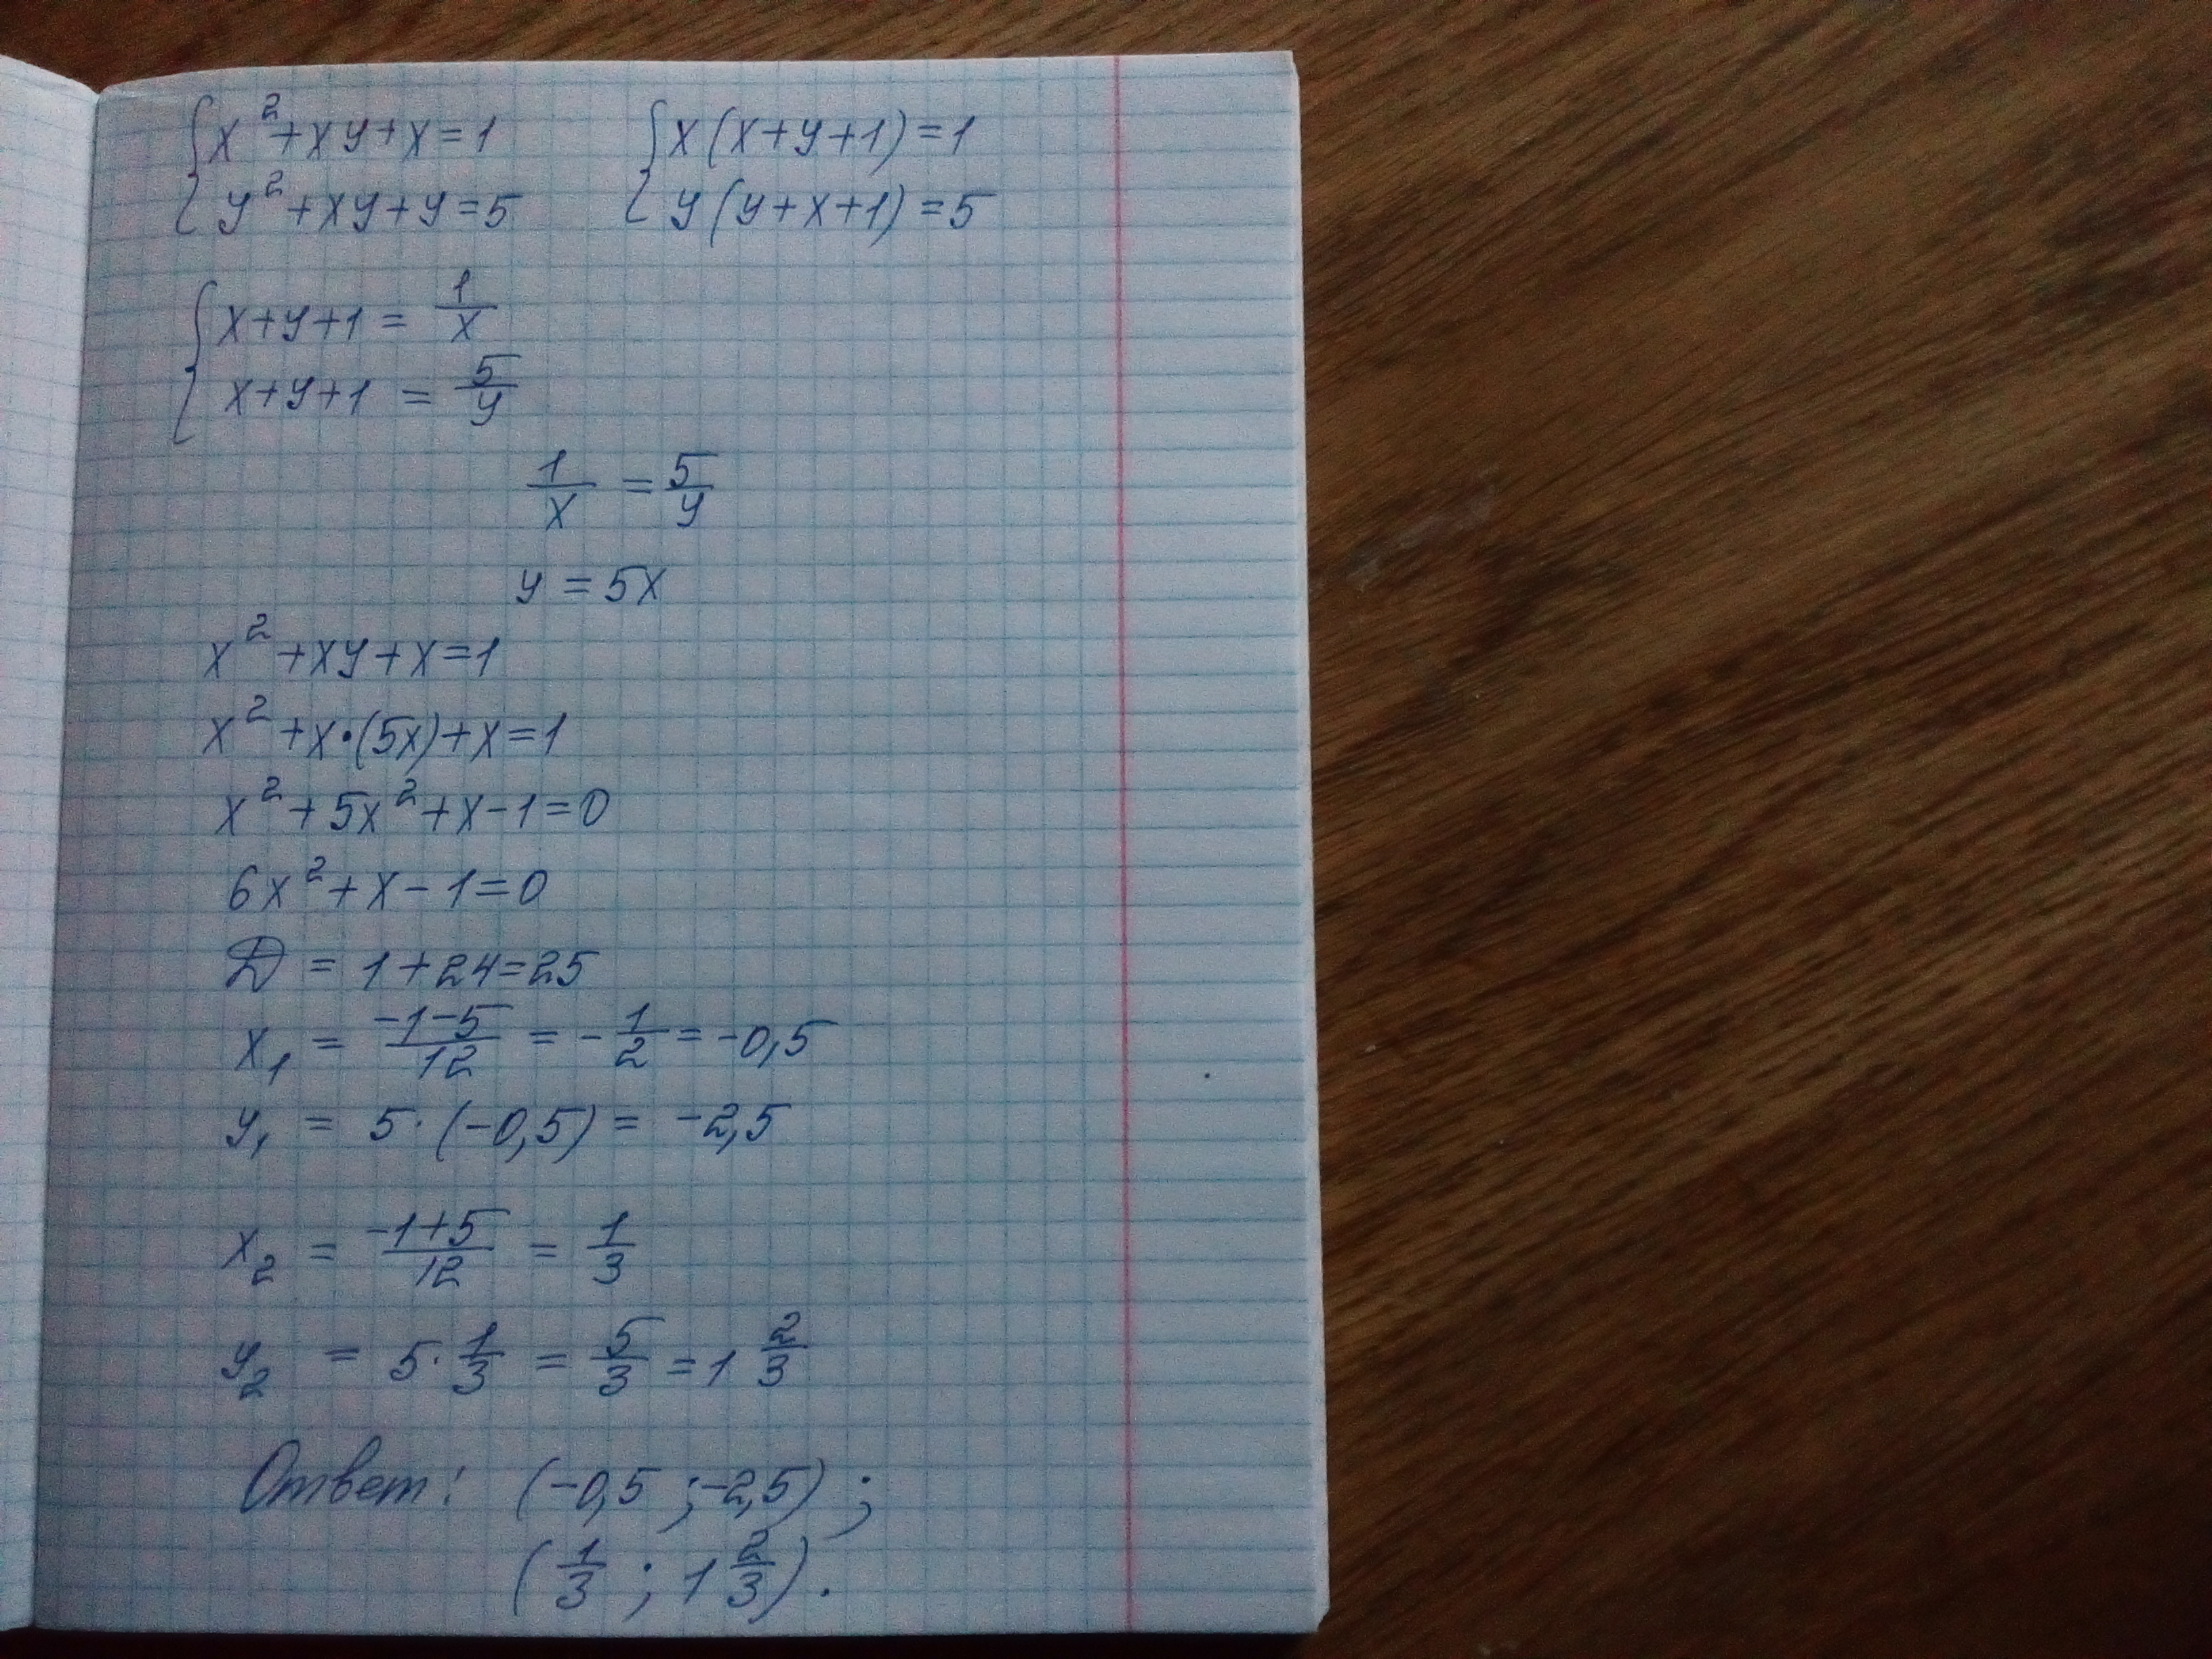 {x²+xy+x=1   {x(x+y+1)=1
{y²+xy+y=5   {y(y+x+1)=5
{x+y+1 = 1/x
{x+y+1 = 5/y
1/x = 5/y
y = 5x
x²+xy+x=1
x²+x·(5x)+x=1
x²+5x²+x-1=0
6x²+x-1=0
D = 1+24=25
x₁ = (-1-5)/12 = -1/2 = -0,5
y₁ = 5·(-0,5) = -2,5
x₂ = (-1+5)/12 = 1/3
y₂ = 5·1/3 = 5/3 = 1 2/3
Ответ: (-0,5 ; -2,5) ;
(1/3 ; 1 2/3).